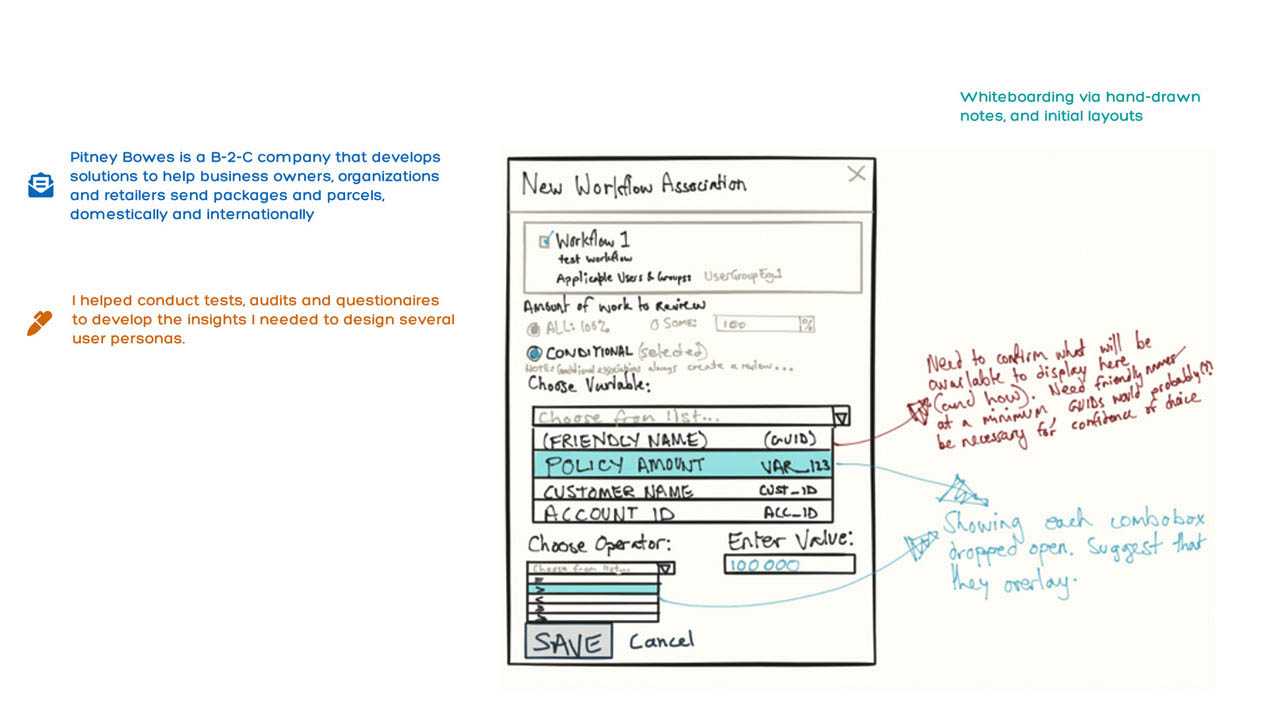 Whiteboarding via hand-drawn
notes, and initial layouts
Pitney Bowes is a B-2-C company that develops
solutions to help business owners, organizations
and retailers send packages and parcels,
domestically and internationally
I helped conduct tests, audits and questionaires
to develop the insights I needed to design several
user personas.
New Workflow Association
Workflow 1
test workflow
Applicable Users & Groups: UserGroupEg.1
Amount of work to Review
ALL: 100% SOME: 100 %
CONDITIONAL (selected)
NOTE: Conditional associations always create a review...
Choose Variable:
Choose from list...
(FRIENDLY NAME) (GUID)
POLICY AMOUNT VAR_123
CUSTOMER NAME CUST_ID
ACCOUNT ID ACC_ID
Choose Operator: Enter Value:
Choose from list... 100 000
=
SAVE Cancel
Need to confirm what will be
available to display here
(and how). Need friendly names
at a minimum, GUIDs would probably(?)
be necessary for confidence of choice
Showing each combobox
dropped open. Suggest that
they overlay.